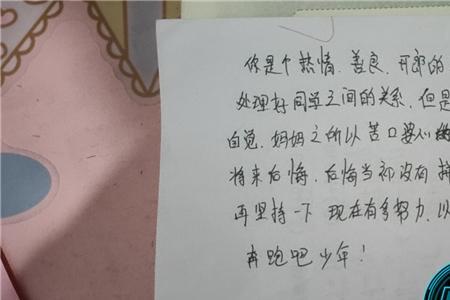 你是个热情、善良、开郎的
处理好同学之间的关系,但是
自觉,妈妈之所以苦口婆心
将来后悔,后悔当初没有
再坚持一下 现在有多努力,以
奔跑吧少年!